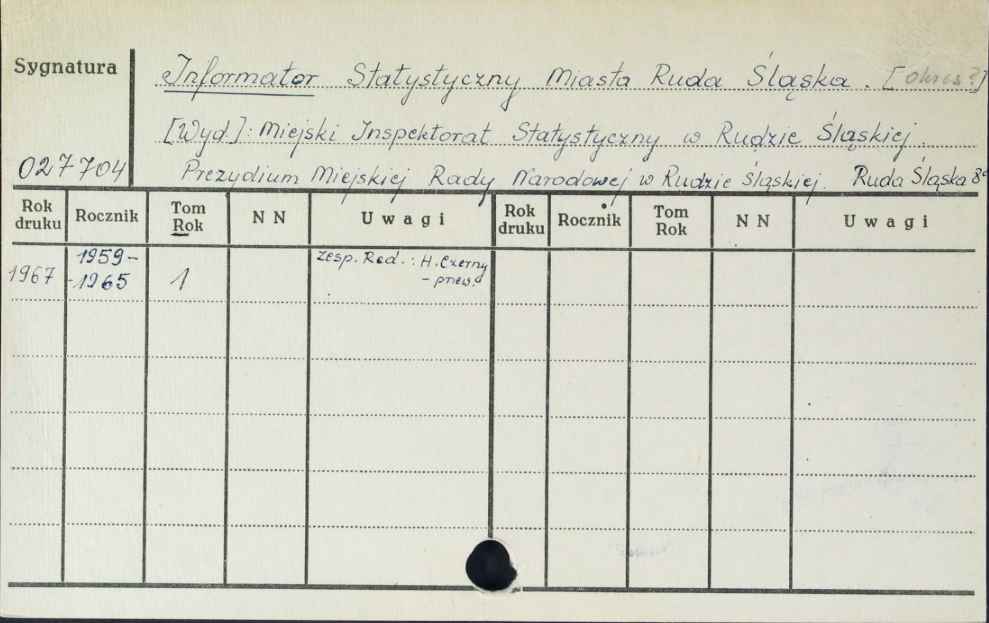 Sygnatura
Informator Statystyczny Miasta Ruda Śląska. [Okres?]
[Wyd]: Miejski Inspektorat Statystyczny w Rudzie Śląskiej.
027704
Prezydium Miejskiej Rady Narodowej w Rudzie Śląskiej. Ruda Śląska 8°
Rok druku Rocznik Tom Rok N N Uwagi Rok druku Rocznik Tom Rok N N Uwagi
1967 1959- -1965 1 Zesp. Red.: H. Czerny - przew.